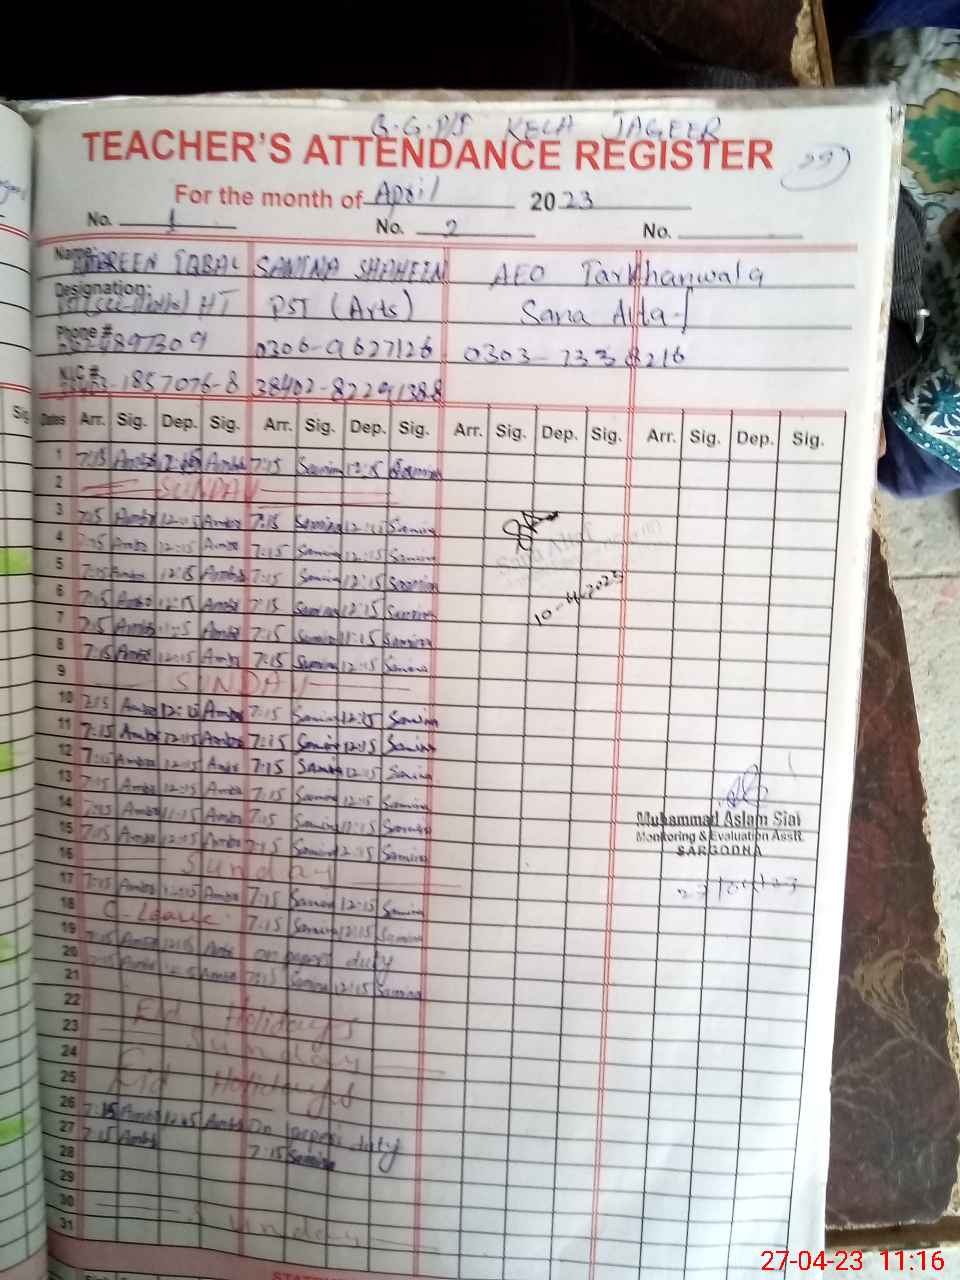 G.G.P/S KELA JAGEER
TEACHER'S ATTENDANCE REGISTER
For the month of April 2023
No. 1 No. 2 No.
Name: AMBREEN IQBAL SAMINA SHAHEEN AEO Tarkhanwala
Designation: HT PST (Arts) Sana Altaf
Phone # 0306-9627126 0303-7338216
NIC # -1857076-8 38402-8229138-8
Dates Arr. Sig. Dep. Sig. Arr. Sig. Dep. Sig. Arr. Sig. Dep. Sig. Arr. Sig. Dep. Sig.
1 7:15 Ambr Ambr 7:15 Samina 12:15 Samina
2 SUNDAY
3 7:15 Ambr 12:15 Ambr 7:15 Samina 12:15 Samina
4 7:15 Ambr 12:15 Ambr 7:15 Samina 12:15 Samina
5 7:15 Ambr 12:15 Ambr 7:15 Samina 12:15 Samina
6 7:15 Ambr 12:15 Ambr 7:15 Samina 12:15 Samina
7 7:15 Ambr Ambr 7:15 Samina 11:15 Samina
8 7:15 Ambr 12:15 Ambr 7:15 Samina 12:15 Samina
9 SUNDAY
10 7:15 Ambr 12:15 Ambr 7:15 Samina 12:15 Samina
11 7:15 Ambr 12:15 Ambr 7:15 Samina 12:15 Samina
12 7:15 Ambr 12:15 Ambr 7:15 Samina 12:15 Samina
13 7:15 Ambr 12:15 Ambr 7:15 Samina 12:15 Samina
14 7:15 Ambr 11:15 Ambr 7:15 Samina 11:15 Samina
15 7:15 Ambr 12:15 Ambr 7:15 Samina 12:15 Samina
16 Sunday
17 7:15 Ambr 12:15 Ambr 7:15 Samina 12:15 Samina
18 C-Leave 7:15 Samina 12:15 Samina
19 7:15 Ambr 12:15 Ambr on papers duty
20 7:15 Ambr 12:15 Ambr 7:15 Samina 12:15 Samina
21
22 Eid Holidays
23 Sunday
24
25 Eid Holidays
26 7:15 Ambr 12:45 Ambr On papers duty
27 7:15 Ambr 7:15 Samina
28
29
30 Sunday
31
Sana Altaf
10-4-2023
Muhammad Aslam Sial
Monitoring & Evaluation Asstt.
SARGODHA
27/04/23
27-04-23 11:16